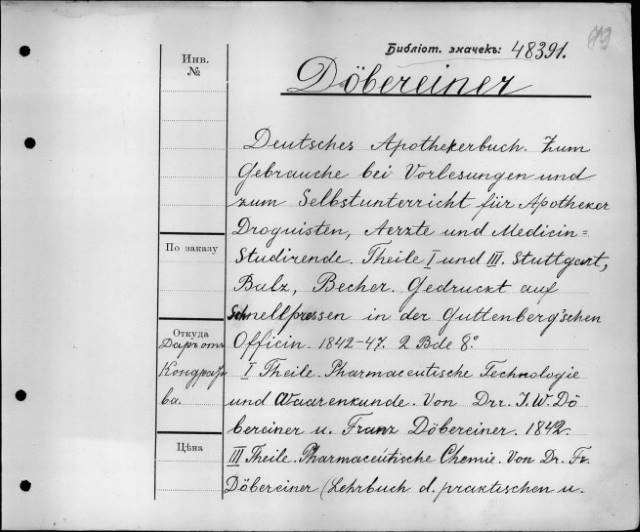 Библіот. значекъ: 48391.
93
Инв.
№
Döbereiner
Deutsches Apothekerbuch. Zum
Gebrauche bei Vorlesungen und
zum Selbstunterricht für Apotheker
Droguisten, Aerzte und Medicin=
По заказу
Studirende. Theile I und III. Stuttgart,
Balz, Becher. Gedruckt auf
Schnellpressen in der Guttenberg'schen
Откуда
Officin. 1842-47. 2 Bde 8°
Даръ отъ
I Theile. Pharmaceutische Technologie
Кондрать
ва.
und Waarenkunde. Von Drr. J. W. Dö
bereiner u. Franz Döbereiner. 1842.
Цѣна
III Theile. Pharmaceutische Chemie. Von Dr. Fr.
Döbereiner (Lehrbuch d. praktischen u.